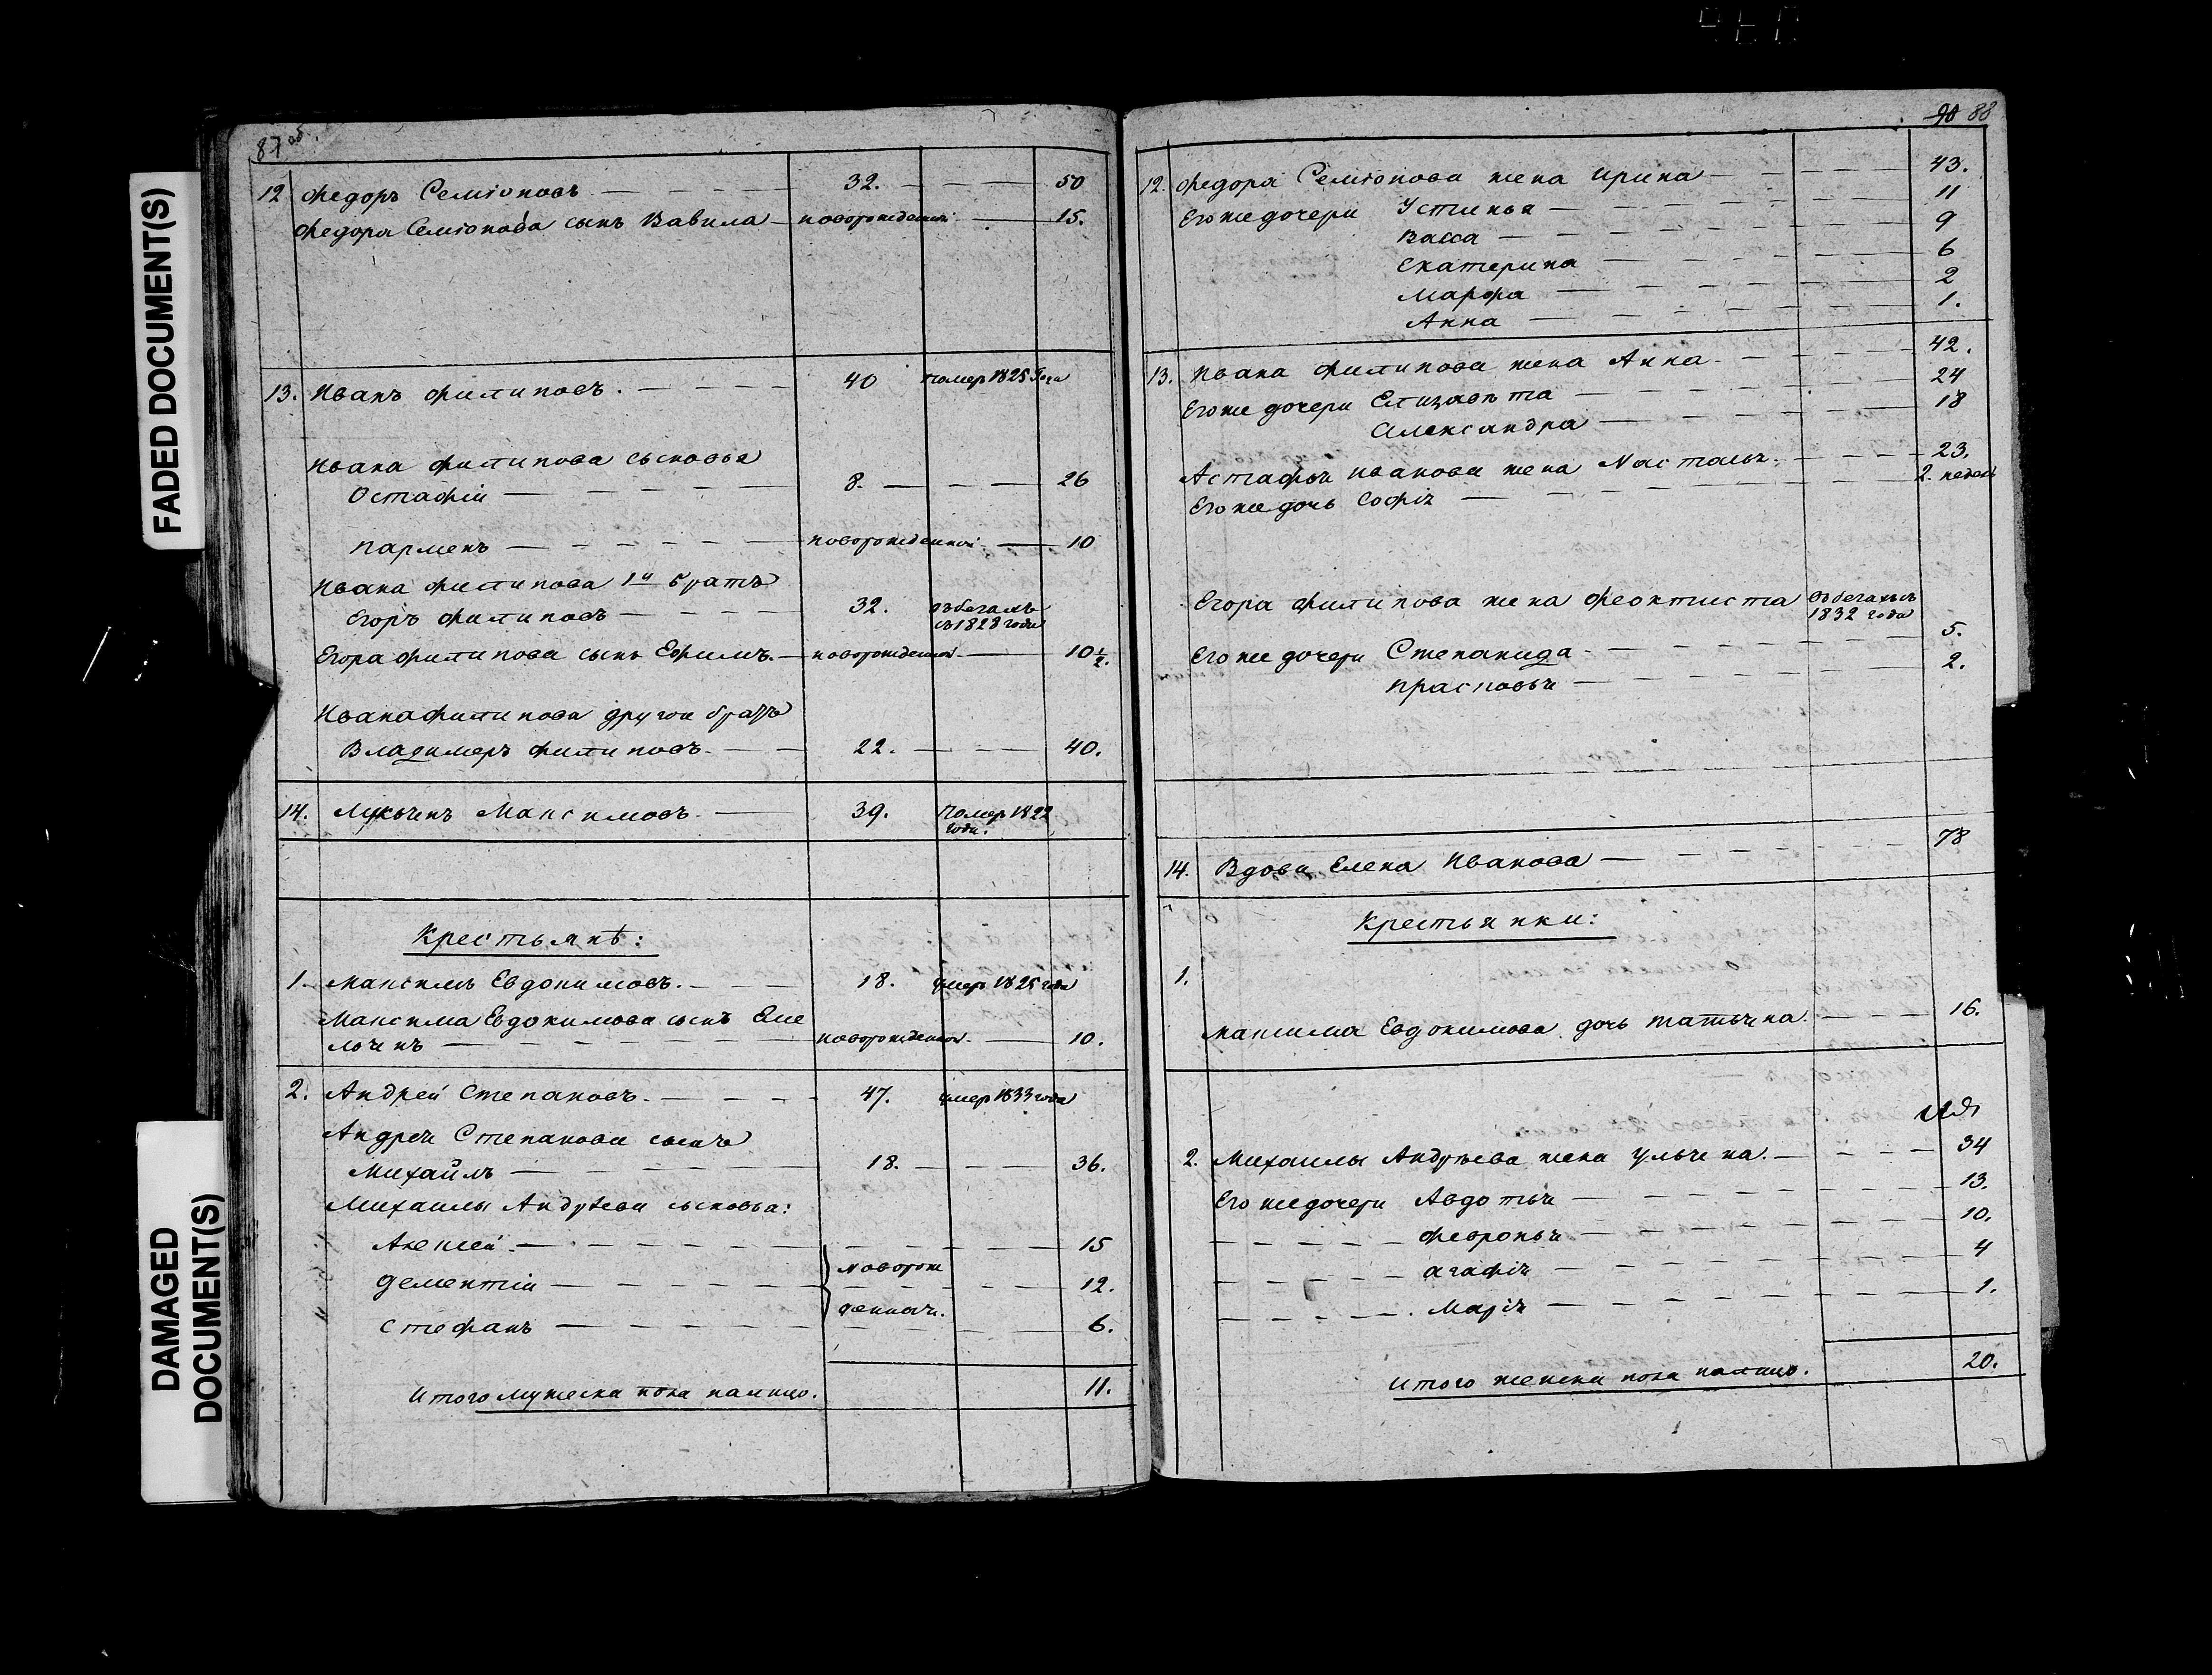 FADED DOCUMENT(S)
DAMAGED
DOCUMENT(S)
87 об.
12 Федоръ Семіоновъ 32. 50
Федора Семіонова сынъ Вавила новорожденной 15.
13. Иванъ Филиповъ. 40 помер 1825 года
Ивана Филипова сыновья
Остафіи 8. 26
Парменъ новорожденной 10
Ивана Филипова 1й братъ
Егоръ Филиповъ 32. въ бегахъ
съ 1828 года
Егора Филипова сынъ Ефимъ. новорожденой 10 1/2.
Ивана Филипова другои братъ
Владимеръ Филиповъ. 22. 40.
14. Лукьянъ Максимовъ. 39. Помер 1822
года.
Крестьянѣ:
1. Максимъ Евдокимовъ. 18. умеръ 1825 года
Максима Евдокимова сынъ Еме
льянъ новорожденой. 10.
2. Андреи Степановъ. 47. умер 1833 года
Андрея Степанова сынъ
Михайлъ 18. 36.
Михаилы Андрѣева сыновья:
Алексей. 15
новорож
Дементіи 12.
денныя.
Стефанъ 6.
Итого мужеска пола налицо. 11.
90 88
12. Федора Семіонова жена Ирина 43.
Его же дочери Устинья 11
Васса 9
Екатерина 6
Марфа 2
Анна 1.
13. Ивана Филипова жена Анна. 42.
Его же дочери Елизавѣта 24
Александра 18
Астафья Иванова жена Настасья. 23.
Его же дочь Софія 2. недель
Егора Филипова жена Феоктиста въ бегахъ съ
1832 года
Его же дочери Степанида 5.
Прасковья 2.
14. Вдова Елена Иванова 78
Крестьянки:
1.
Максима Евдокимова дочь Татьяна. 16.
2. Михаилы Андрѣева жена Ульяна. 34
Его же дочери Авдотья 13.
Февронья 10.
Агафія 4
Марія 1.
Итого женска пола налицо. 20.